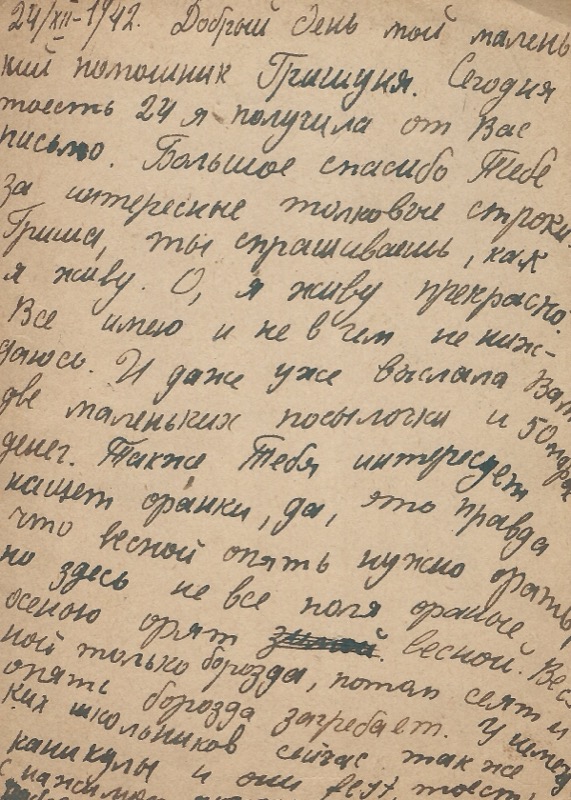 24/XII-1942. Добрый день мой малень
кий помошник Гришуня. Сегодня
тоесть 24 я получила от Вас
письмо. Большое спасибо Тебе
за интересные толковые строки.
Гриша, ты спрашиваешь, как
я живу. О, я живу прекрасно.
Все имею и не в чем не нуж-
даюсь. И даже уже выслала Вам
две маленьких посылочки и 50
денег. Также Тебя интересует
нащет оранки, да, это правда
что весной опять нужно орать,
но здесь не все поля ораные
осеною орят весной. Вес
ной только борозда, потом сеят и
опять борозда загребает. У
ких школьников сейчас также
каникулы и они тоесть